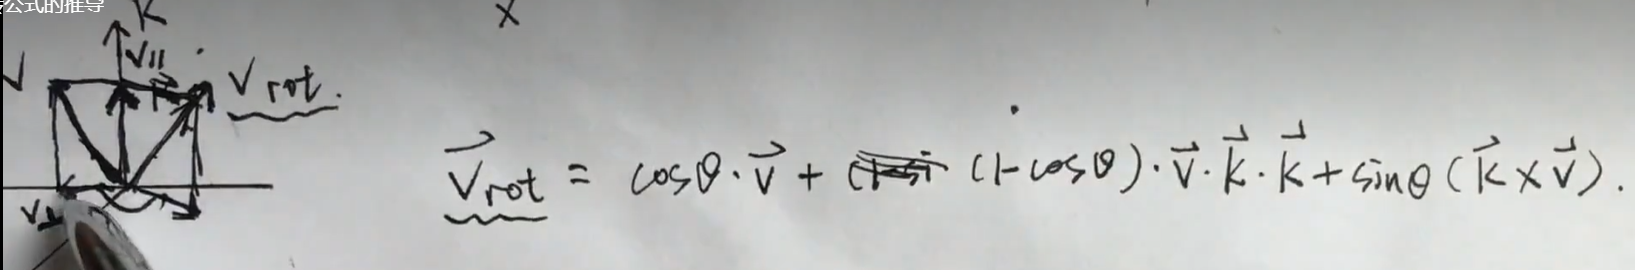 公式的推导
K
x
V
V||
V rot.
V⊥
V⃗rot = cosθ·v⃗ + (1-cosθ)·v⃗·k⃗·k⃗ + sinθ(k⃗×v⃗).